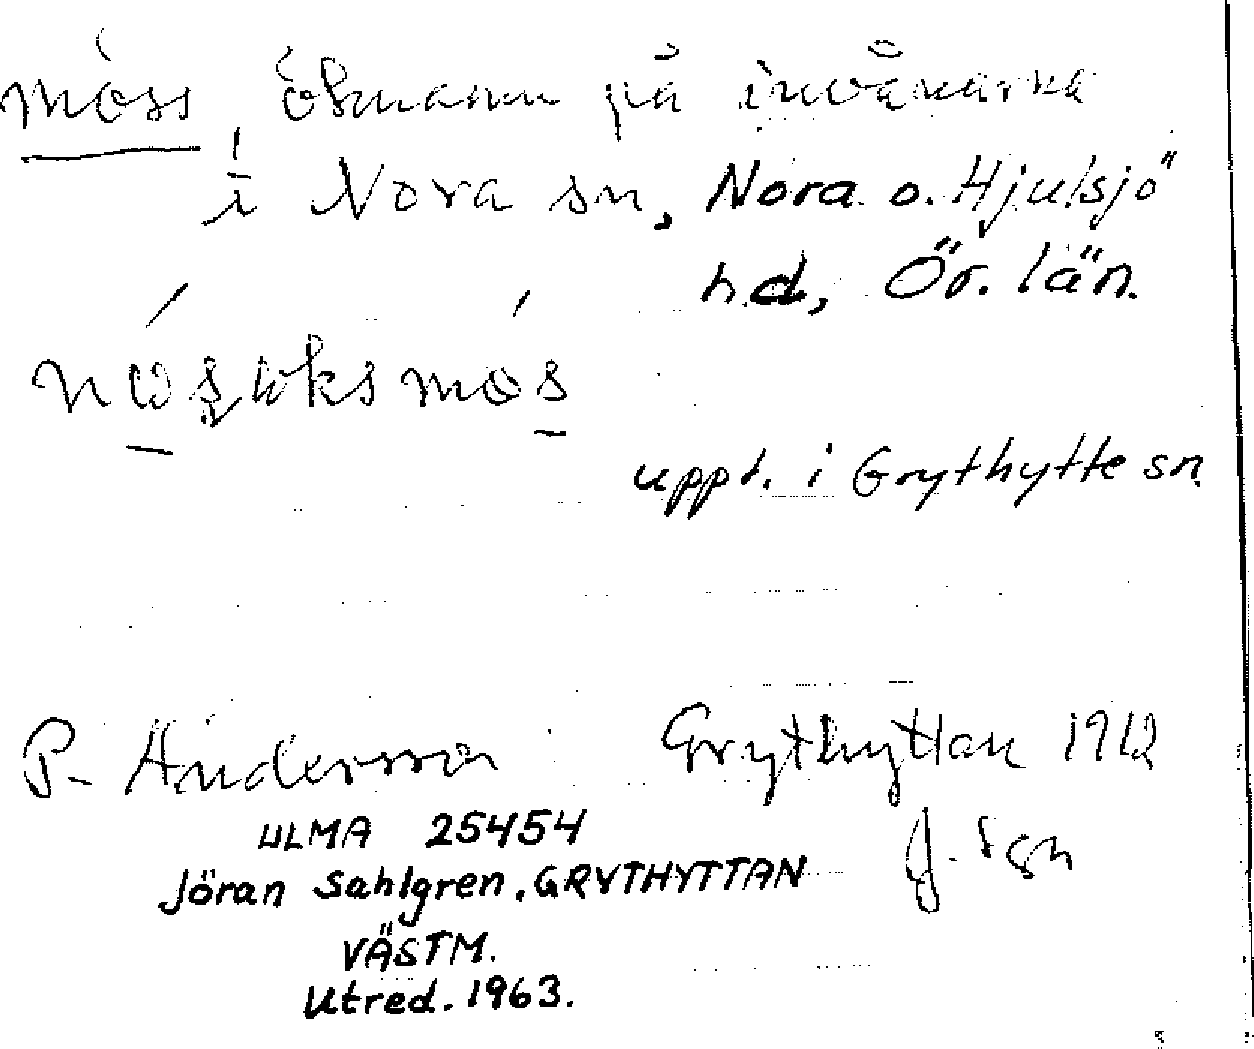 möss, öknamn på invånarna
i Nora sn, Nora o. Hjulsjö
h.d, Ör. län.
uppt. i Grythytte sn.
P. Andersson Grythyttan 1912
ULMA 25454 J. Sgn
Jöran Sahlgren. GRYTHYTTAN
VÄSTM.
Utred. 1963.